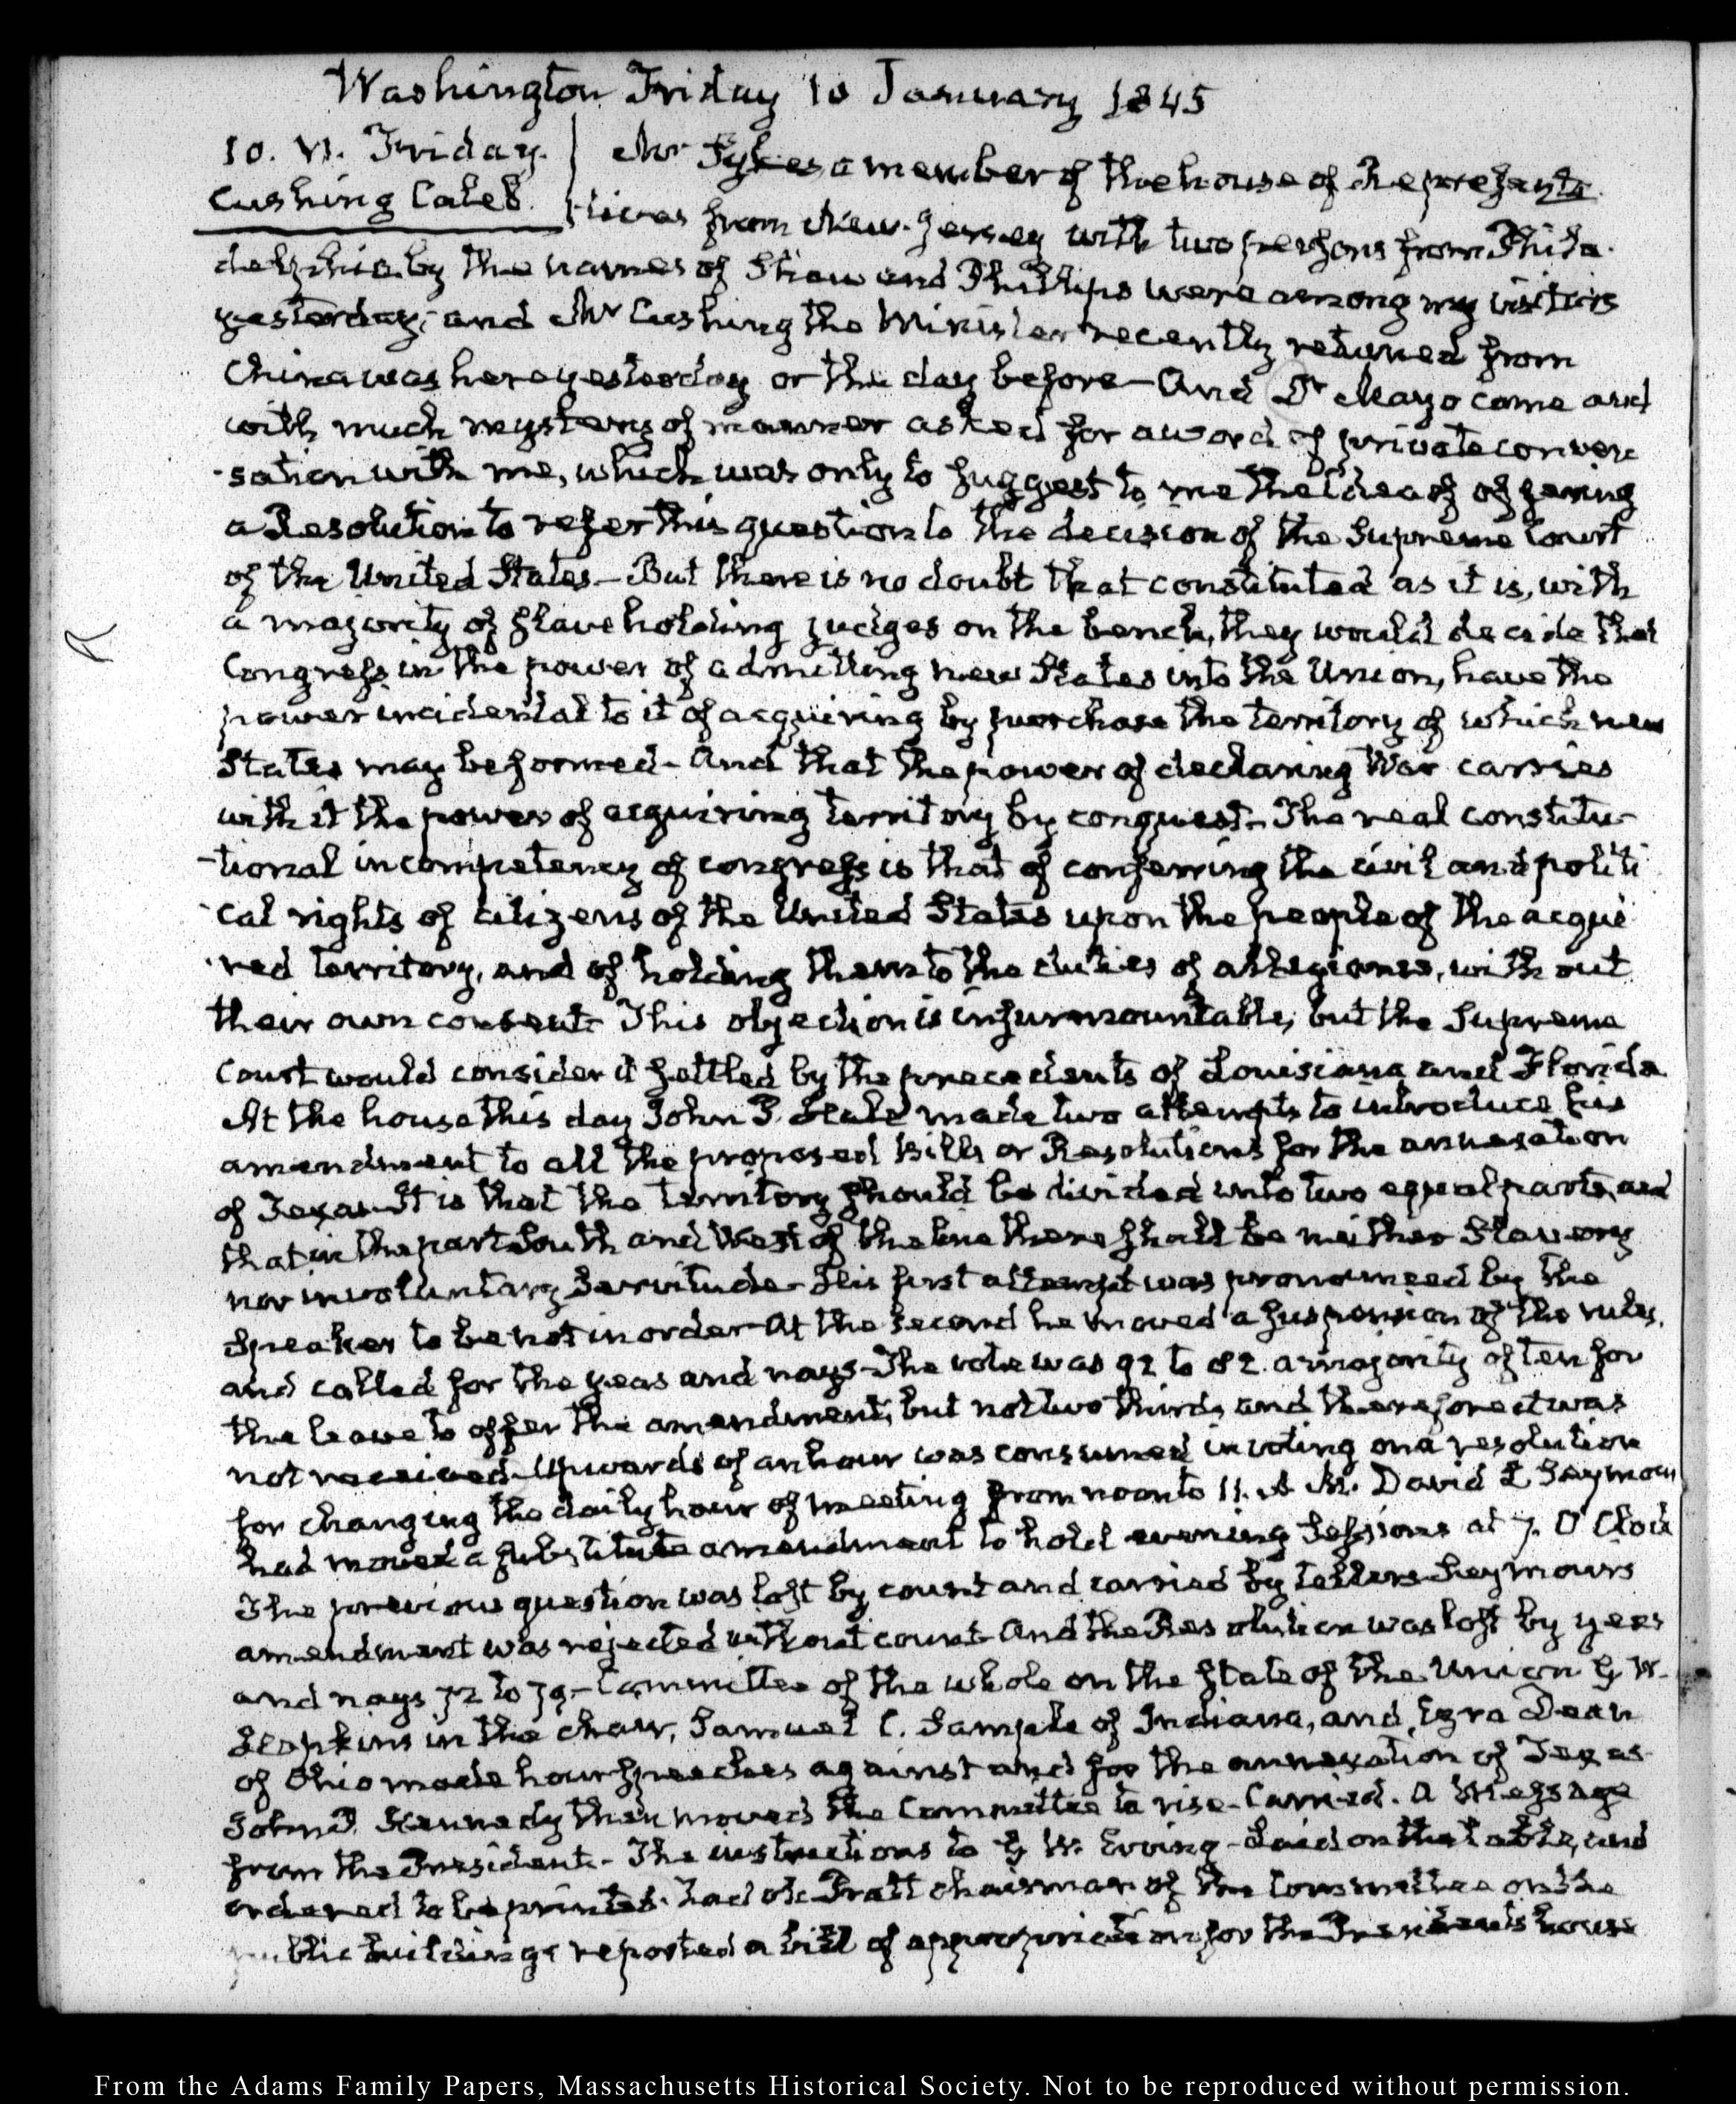 Washington Friday 10 January 1845
10. VI. Friday.
Cushing Caleb.
Mr Sykes a member of the house of Representa
tives from New-Jersey with two persons from Phila-
delphia by the names of Shaw and Phillips were among my visitors
yesterday; and Mr Cushing the Minister recently returned from
China was here yesterday or the day before- And Dr Mayo came and
with much mystery of manner asked for a word of private conver
-sation with me, which was only to suggest to me the idea of
a Resolution to refer this question to the decision of the Supreme Court
of the United States- But there is no doubt that constituted as it is, with
a majority of slave holding judges on the bench, they would decide that
Congress in the power of admitting new States into the Union, have the
power incidental to it of acquiring by purchase the territory of which new
States may be formed- And that the power of declaring War carries
with it the power of acquiring territory by conquest- The real constitu-
-tional incompetency of congress is that of conferring the civil and politi
cal rights of citizens of the United States upon the people of the acqui
-red territory, and of holding them to the duties of allegiance, without
their own consent- This objection is insurmountable, but the Supreme
Court would consider it settled by the precedents of Louisiana and Florida
At the house this day John P. Hale made two attempts to introduce his
amendment to all the proposed Bills or Resolutions for the annexation
of Texas- It is that the Territory should be divided into two equal parts, and
that in the part South and West of the line there shall be neither Slavery
nor involuntary Servitude- His first attempt was pronounced by the
Speaker to be not in order- At the second he moved a suspension of the rules,
and called for the yeas and nays- The vote was 92 to 82. a majority of ten for
the leave to offer the amendment, but not two thirds, and therefore it was
not received- Upwards of an hour was consumed in voting on a resolution
for changing the daily hour of meeting from noon to 11. A.M. David L Seymour
had moved a substitute amendment to hold evening Sessions at 7. O'Clock
The previous question was lost by count and carried by tellers- Seymours
amendment was rejected without count- And the Resolution was lost by yeas
and nays 72 to 79.- Committee of the whole on the state of the Union G. W.
Hopkins in the chair, Samuel C. Sample of Indiana, and Ezra Dean
of Ohio made hour speeches against and for the annexation of Texas-
John P. Kennedy then moved the Committee to rise- Carried. A Message
from the President- The instructions to G W. Erving- Laid on the table, and
ordered to be printed. Zadok Pratt chairman of the Committee on the
public buildings reported a bill of appropriation for the Presidents house
From the Adams Family Papers, Massachusetts Historical Society. Not to be reproduced without permission.